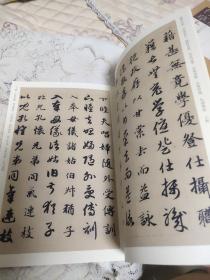 籍甚無竟學優登仕攝職
從政存以甘棠去而益詠
下睦夫唱婦隨外受傅訓
入奉母儀諸姑伯叔猶子
比兒孔懷兄弟同氣連枝